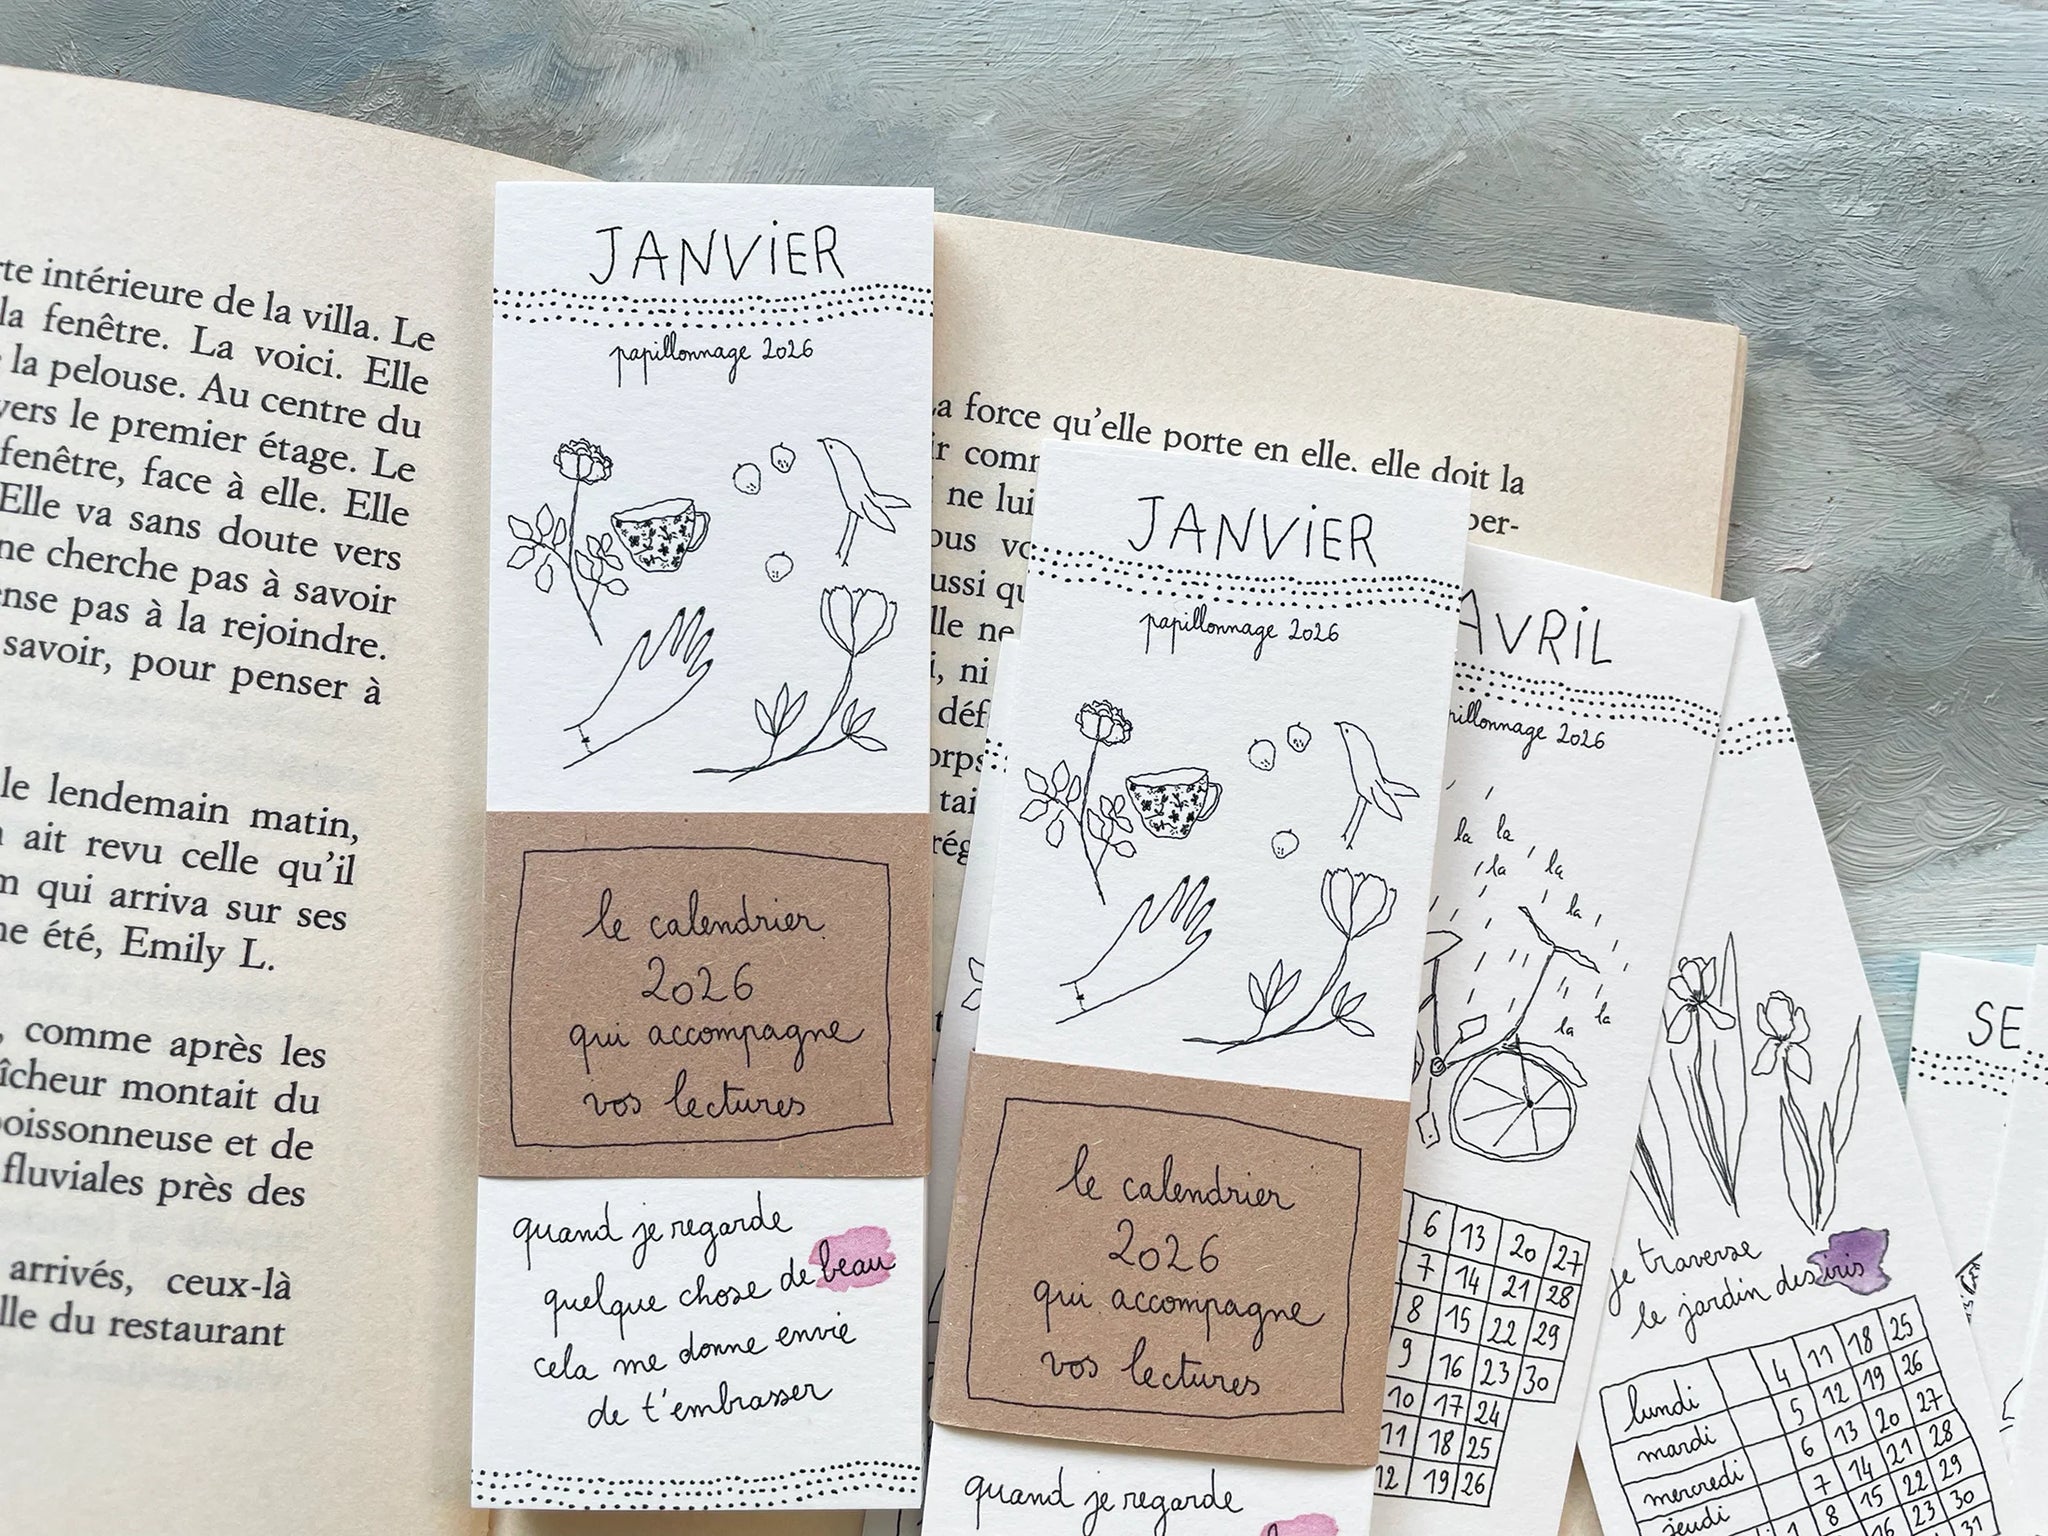 intérieure de la villa. Le
la fenêtre. La voici. Elle
la pelouse. Au centre du
vers le premier étage. Le
fenêtre, face à elle. Elle
Elle va sans doute vers
ne cherche pas à savoir
pas à la rejoindre.
savoir, pour penser à
le lendemain matin,
ait revu celle qu'il
qui arriva sur ses
été, Emily L.
, comme après les
montait du
poissonneuse et de
fluviales près des
arrivés, ceux-là
du restaurant
JANVIER
papillonnage 2026
le calendrier
2026
qui accompagne
vos lectures
quand je regarde
quelque chose de beau
cela me donne envie
de t'embrasser
La force qu'elle porte en elle, elle doit la
ne lui
elle ne
ni
JANVIER
papillonnage 2026
le calendrier
2026
qui accompagne
vos lectures
quand je regarde
AVRIL
papillonnage 2026
la la
la la
la
la la
6 13 20 27
7 14 21 28
8 15 22 29
9 16 23 30
10 17 24
11 18 25
12 19 26
je traverse
le jardin des iris
lundi 4 11 18 25
mardi 5 12 19 26
mercredi 6 13 20 27
jeudi 7 14 21 28
1 8 15 22 29
16 23 30
31
SE